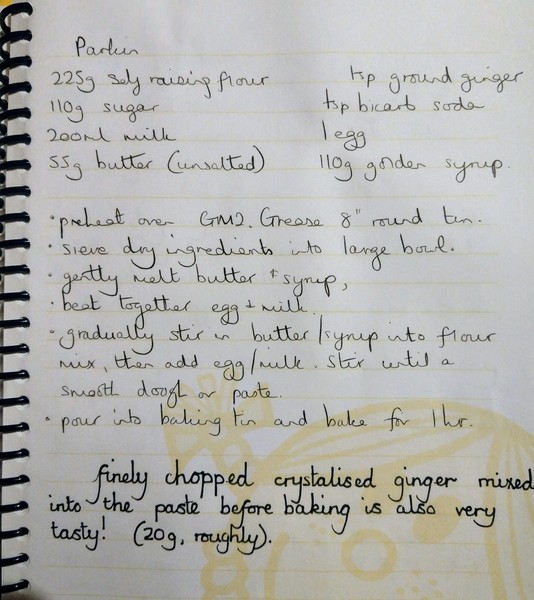 Parkin
225g self raising flour
tsp ground ginger
110g sugar
tsp bicarb soda
200ml milk
1 egg
55g butter (unsalted)
110g golden syrup.
· preheat oven GM2. Grease 8" round tin.
· sieve dry ingredients into large bowl.
· gently melt butter + syrup,
· beat together egg + milk.
· gradually stir in butter/syrup into flour
mix, then add egg/milk. Stir until a
smooth dough or paste.
· pour into baking tin and bake for 1 hr.
finely chopped crystalised ginger mixed
into the paste before baking is also very
tasty! (20g, roughly).